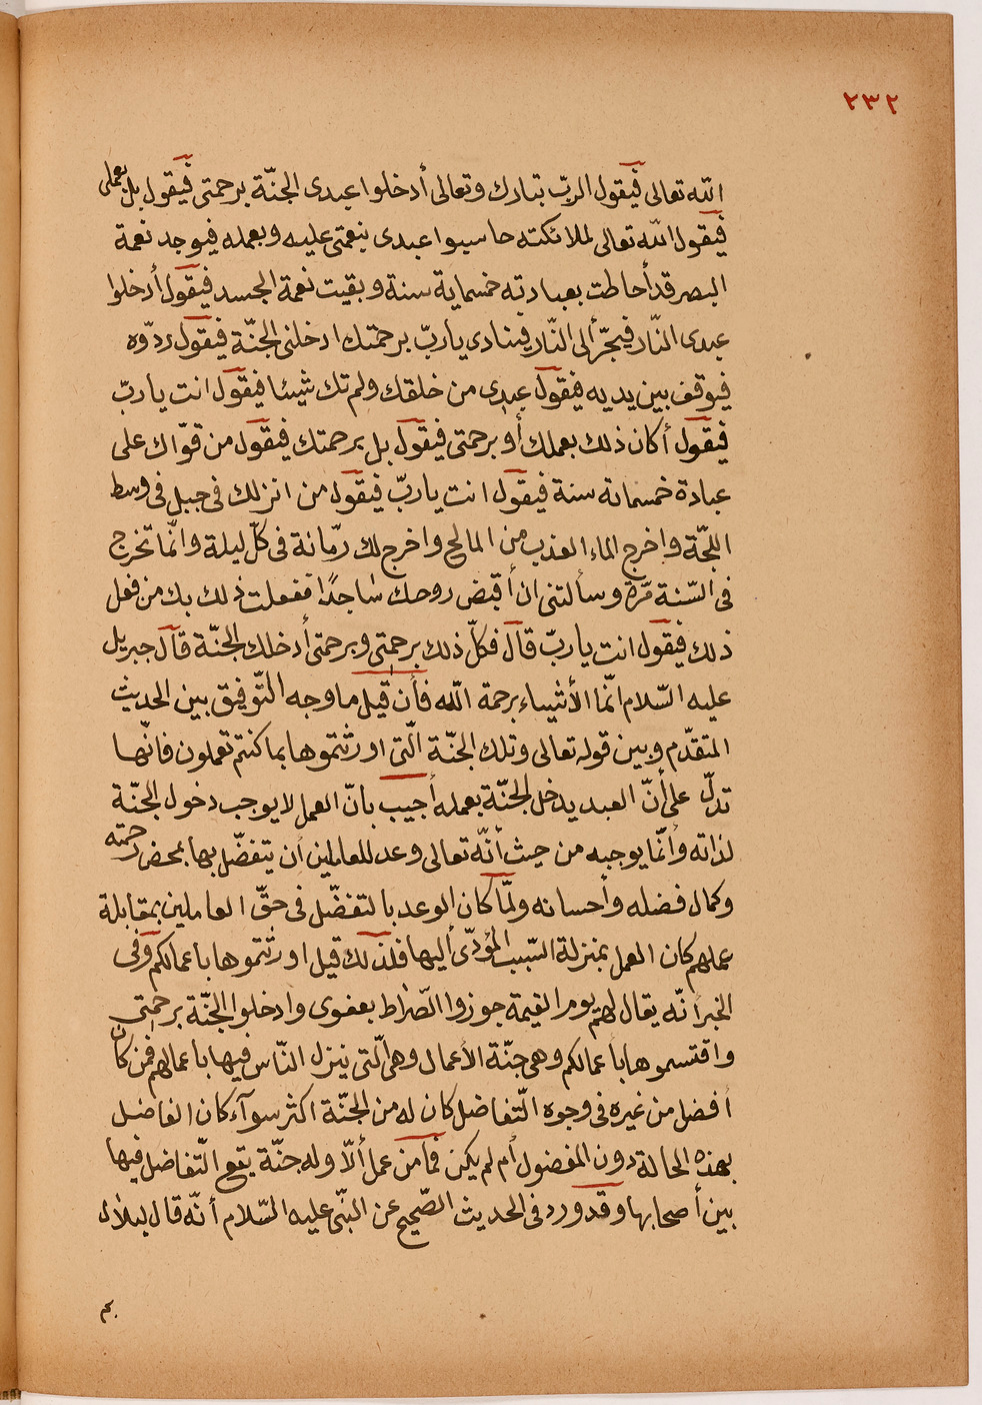 ٢٣٢
الله تعالى فيقول الربّ تبارك وتعالى أدخلوا عبدى الجنّة برحمتى فيقول بل بعملى
فيقول الله تعالى لملائكته حاسبوا عبدى بنعمتى عليه وبعمله فيوجد نعمة
البصر قد أحاطت بعبادته خمسماية سنة وبقيت نعمة الجسد فيقول أدخلوا
عبدى النّار فيجرّ ألى النّار فينادى ياربّ برحمتك ادخلنى الجنّة فيقول ردّوه
فيوقف بين يديه فيقول عبدى من خلقك ولم تك شيئا فيقول انت ياربّ
فيقول أكان ذلك بعملك أو برحمتى فيقول بل برحمتك فيقول من قوّاك على
عبادة خمسمائة سنة فيقول انت ياربّ فيقول من انزلك فى جبل فى وسط
اللجّة واخرج الماء العذب من المالح واخرج لك رمّانة فى كلّ ليلة وانّما تخرج
فى السّنة مرّة وسألتنى ان أقبض روحك ساجدًا ففعلت ذلك بك من فعل
ذلك فيقول انت ياربّ قال فكلّ ذلك برحمتى وبرحمتى أدخلك الجنّة قال جبريل
عليه السّلام انّما الأشياء برحمة الله فأن قيل ما وجه التّوفيق بين الحديث
المتقدّم وبين قوله تعالى وتلك الجنّة الّتى اورثتموها بما كنتم تعملون فانّها
تدلّ على أنّ العبد يدخل الجنّة بعمله أجيب بانّ العمل لا يوجب دخول الجنّة
لذاته وأنّما يوجبه من حيث أنّه تعالى وعد للعاملين أن يتفضّل بها بمحض رحمته
وكمال فضله وأحسانه ولمّا كان الوعد بالتفضّل فى حقّ العاملين بمقابلة
عملهم كان العمل بمنزلة السّبب المؤدّى أليها فلذلك قيل اورثتموها باعمالكم وفى
الخبر انّه يقال لهم يوم القيمة جوزوا الصّراط بعفوى وادخلوا الجنّة برحمتى
واقتسموها باعمالكم وهى جنّة الأعمال وهى الّتى ينزل النّاس فيها باعمالهم فمن كان
افضل من غيره فى وجوه التّفاضل كان له من الجنّة اكثر سوآء كان الفاضل
بهذه الحالة دون المفضول أم لم يكن فما من عمل ألّا وله جنّة يقع التّفاضل فيها
بين أصحابها وقد ورد فى الحديث الصّحيح عن النّبى عليه السّلام أنّه قال لبلال
بم